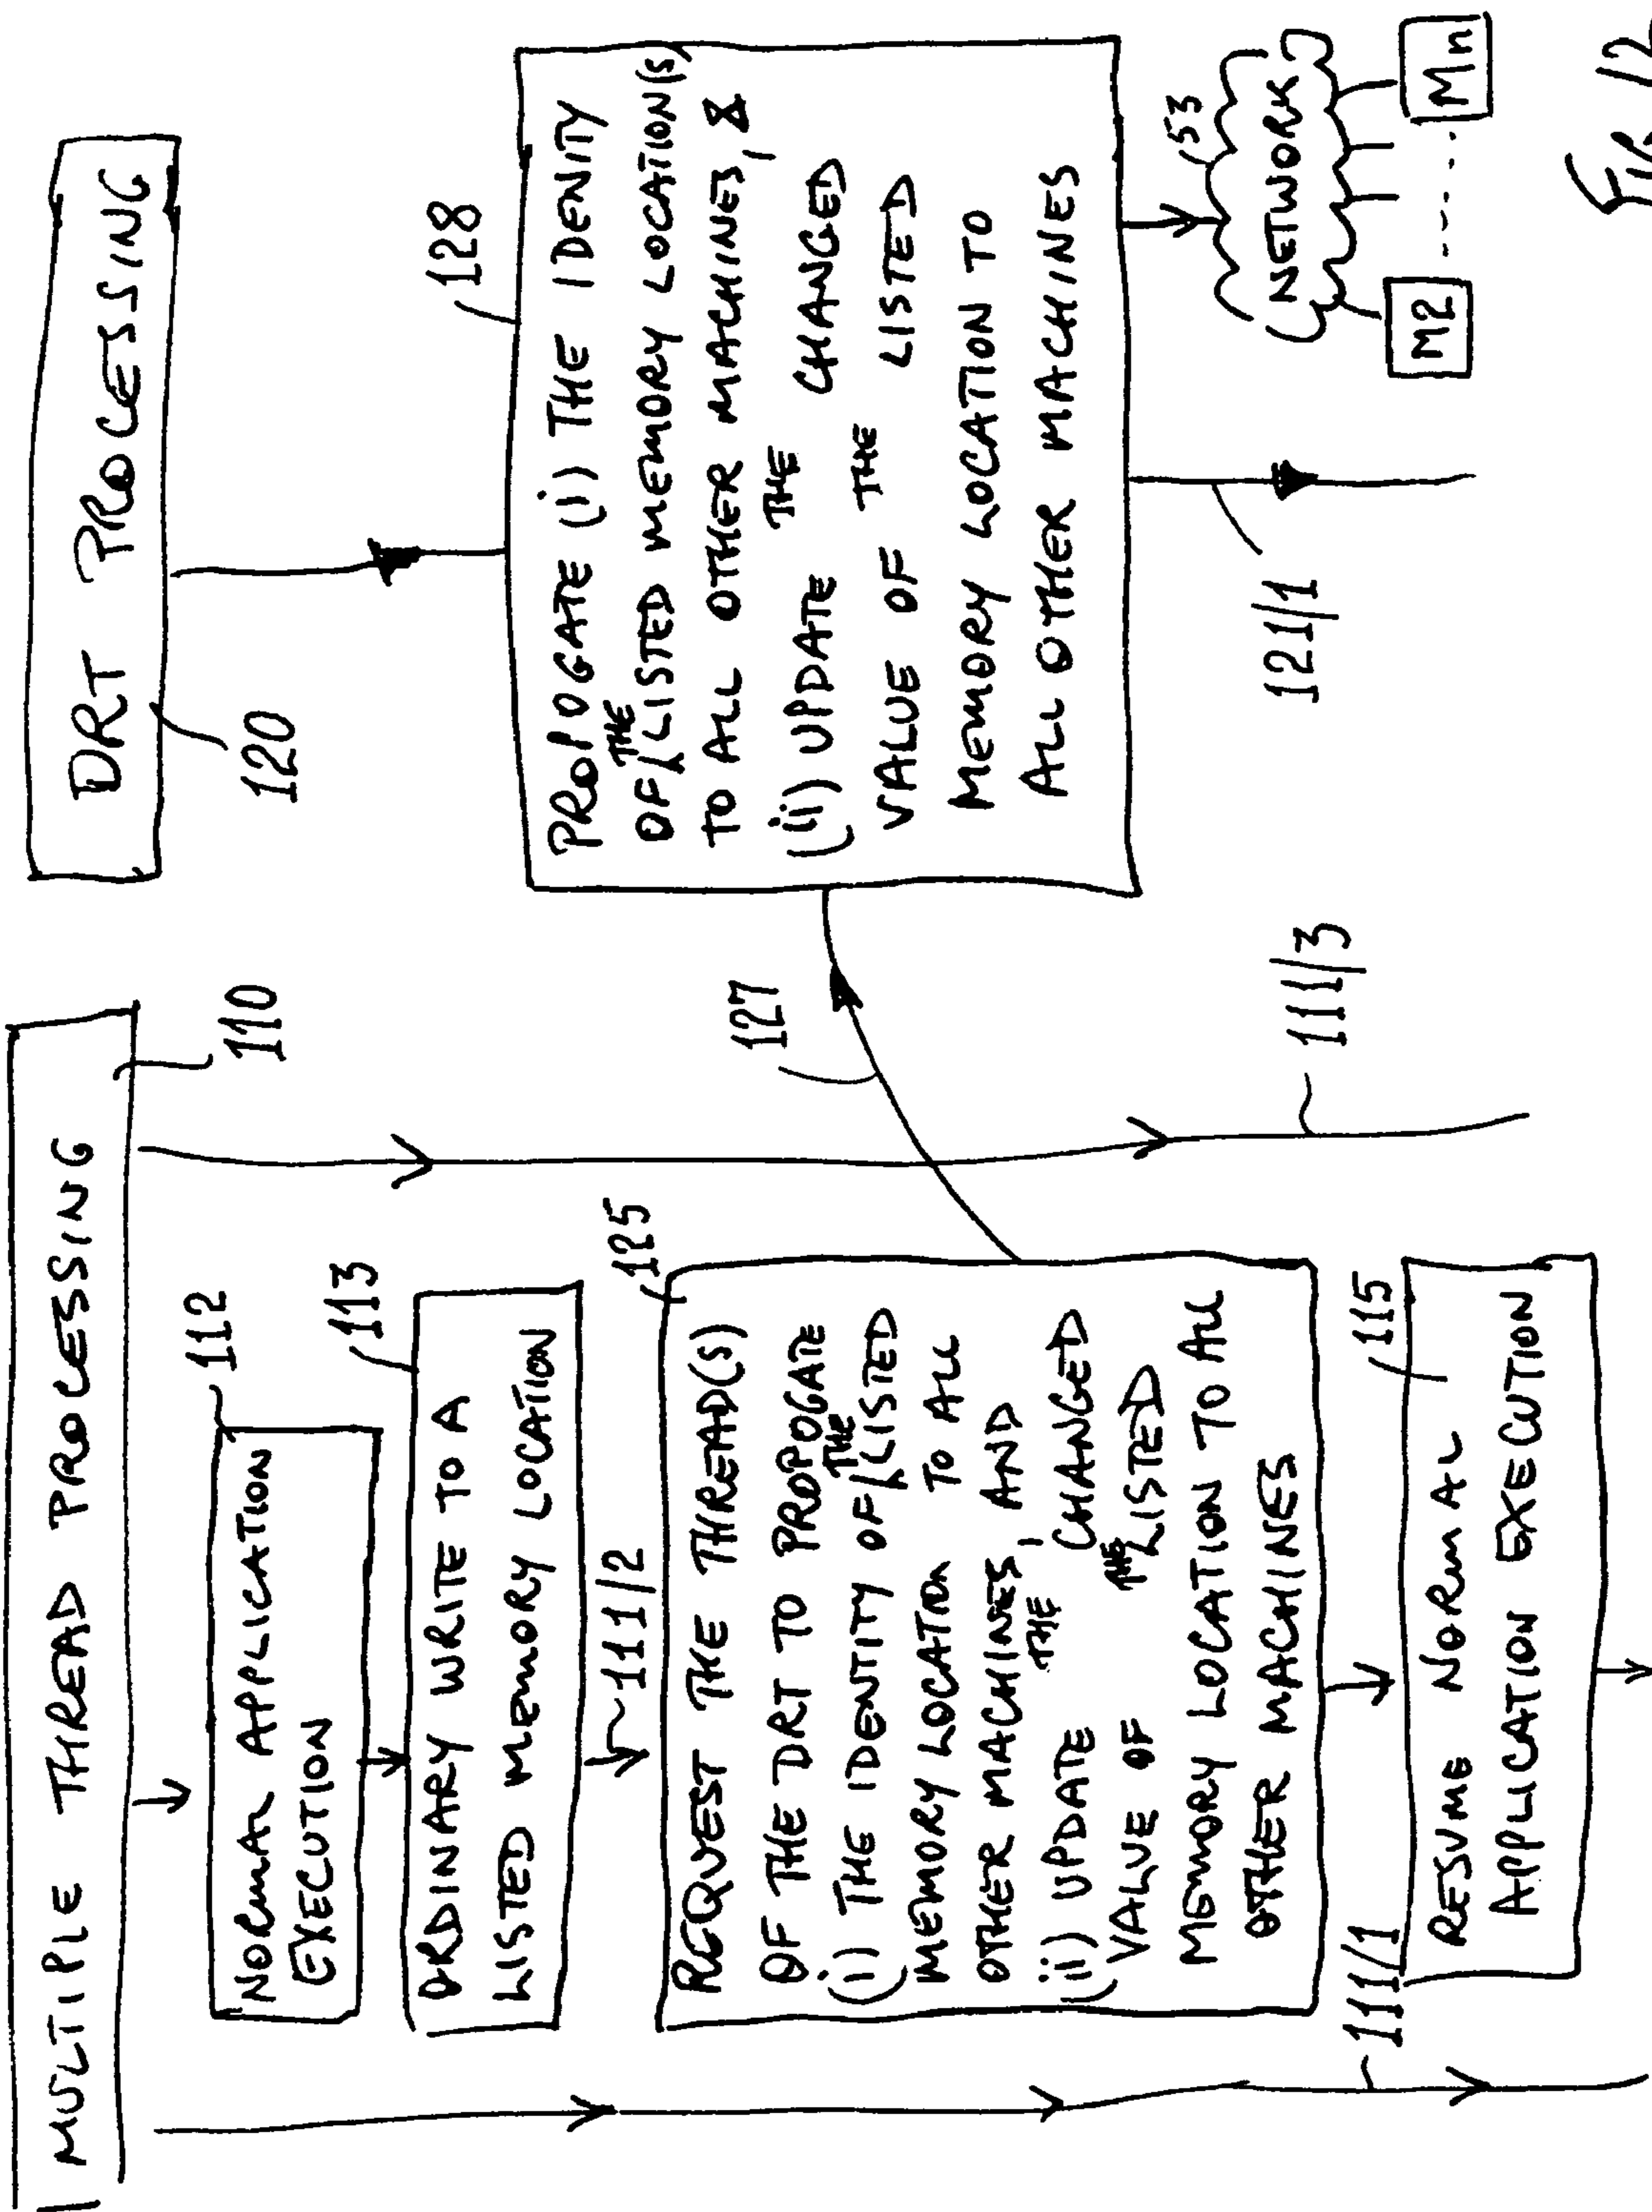 MULTIPLE THREAD PROCESSING
110
112
NORMAL APPLICATION
EXECUTION
113
ORDINARY WRITE TO A
LISTED MEMORY LOCATION
111/2
125
REQUEST THE THREAD(S)
OF THE DRT TO PROPOGATE
(i) THE IDENTITY OF THE LISTED
MEMORY LOCATION TO ALL
OTHER MACHINES, AND
(ii) UPDATE THE CHANGED
VALUE OF THE LISTED
MEMORY LOCATION TO ALL
OTHER MACHINES
111/1
115
RESUME NORMAL
APPLICATION EXECUTION
127
111/3
DRT PROCESSING
120
128
PROPOGATE (i) THE IDENITY
OF THE LISTED MEMORY LOCATION(S)
TO ALL OTHER MACHINES, &
(ii) UPDATE THE CHANGED
VALUE OF THE LISTED
MEMORY LOCATION TO
ALL OTHER MACHINES
121/1
53
NETWORK
M2
Mn
FIG 12